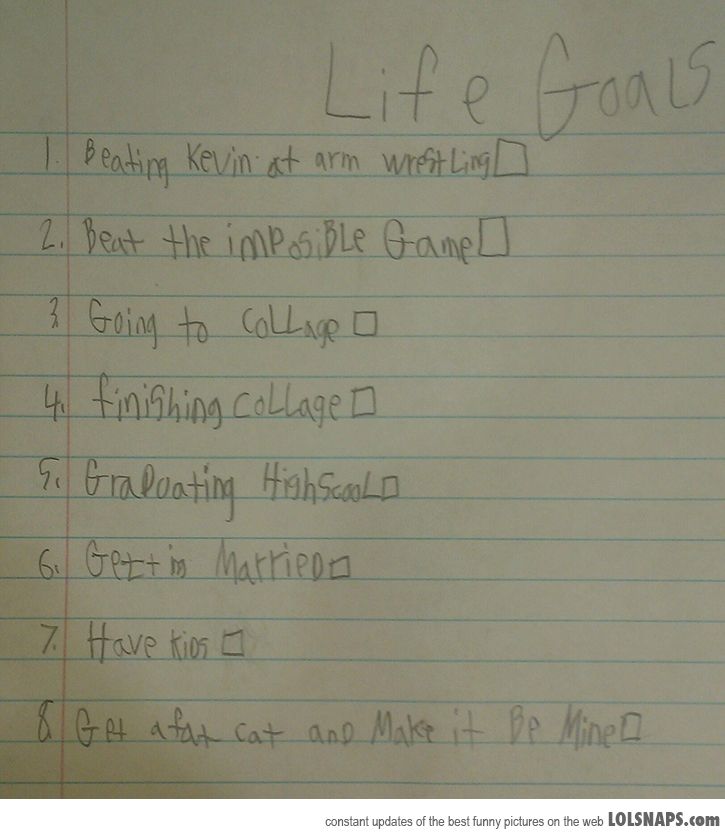 Life Goals
1. Beating Kevin at arm wrestling
2. Beat the imposiBLe Game
3 Going to collage
4. finishing collage
5. Graduating High Scool
6. Gettin Married
7. Have kids
8 Get a fat cat and Make it Be Mine
constant updates of the best funny pictures on the web LOLSNAPS.com